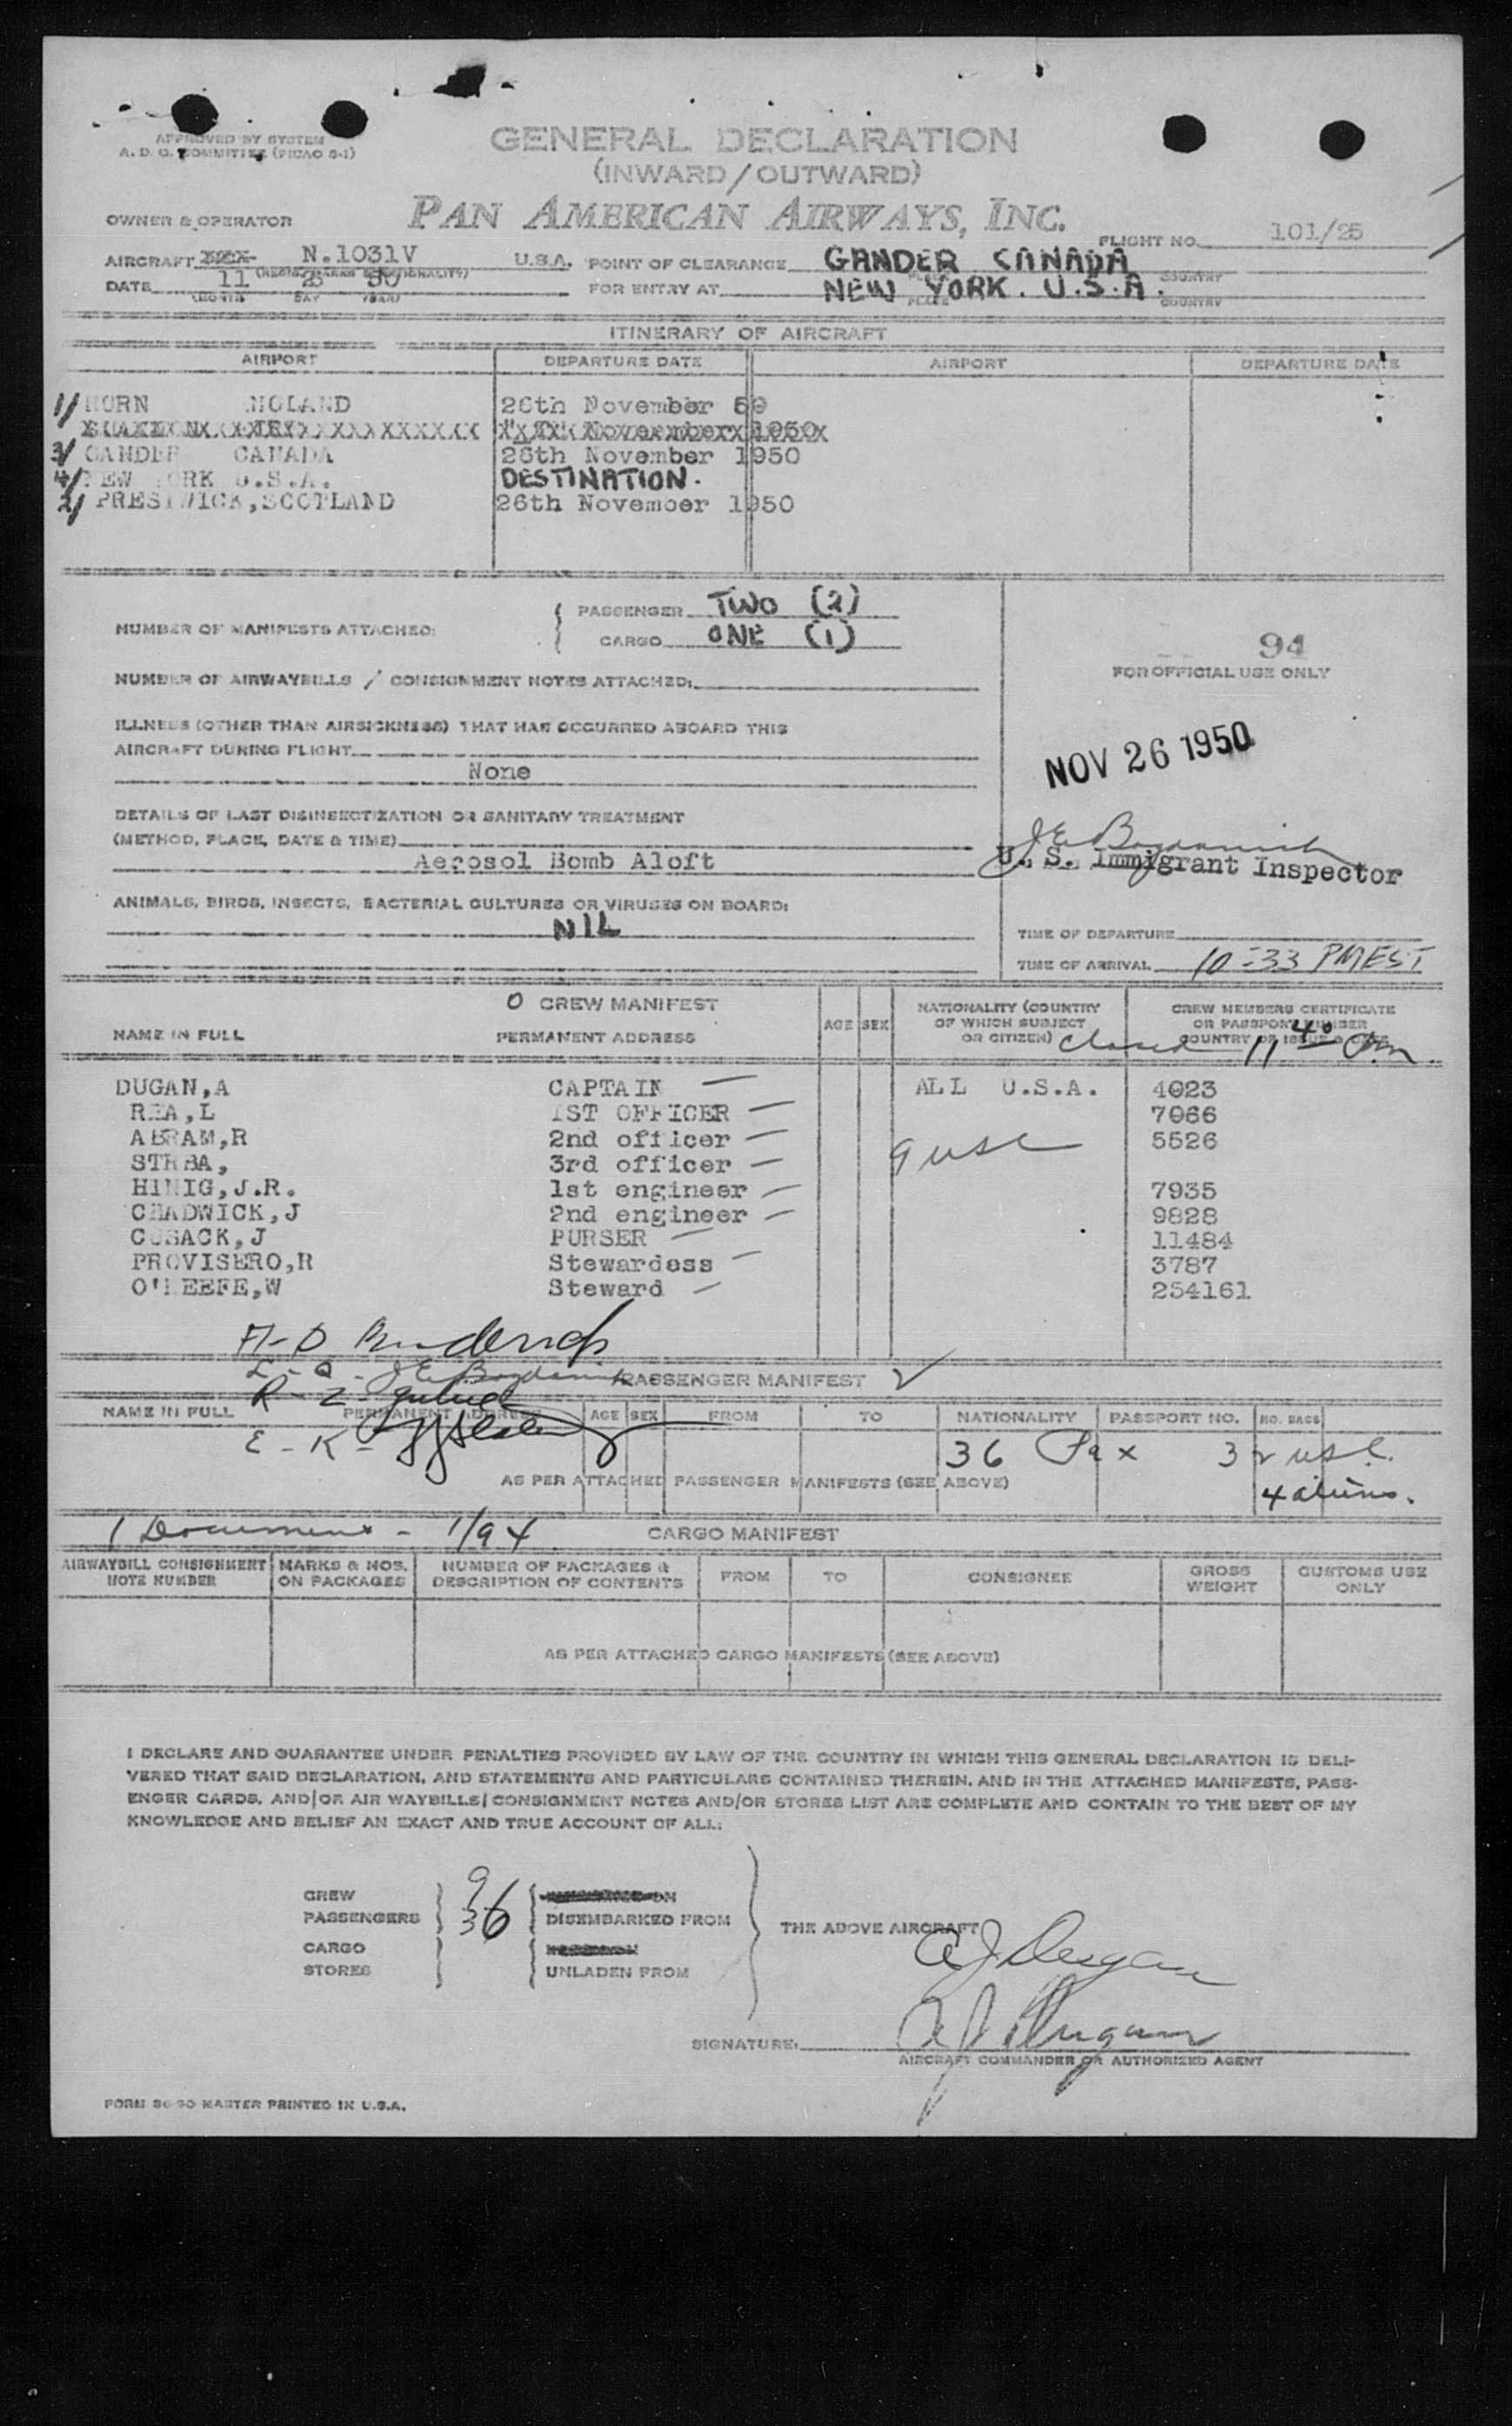 APPROVED BY SYSTEM
A. D. C. COMMITTEE (PICAO S-1)
GENERAL DECLARATION
(INWARD/OUTWARD)
OWNER & OPERATOR PAN AMERICAN AIRWAYS, INC.
FLIGHT NO. 101/25
AIRCRAFT N.1031V U.S.A. POINT OF CLEARANCE GANDER CANADA
DATE 11 50 FOR ENTRY AT NEW YORK. U.S.A.
(MONTH DAY YEAR) PLACE COUNTRY
ITINERARY OF AIRCRAFT
AIRPORT DEPARTURE DATE AIRPORT DEPARTURE DATE
1/ NGLAND 26th November
3/ GANDER CANADA 26th November 1950
4/ NEW YORK U.S.A. DESTINATION.
2/ PRESTWICK,SCOTLAND 26th November 1950
NUMBER OF MANIFESTS ATTACHED: PASSENGER TWO (2)
CARGO ONE (1)
94
FOR OFFICIAL USE ONLY
NUMBER OF AIRWAYBILLS / CONSIGNMENT NOTES ATTACHED:
ILLNESS (OTHER THAN AIRSICKNESS) THAT HAS OCCURRED ABOARD THIS
AIRCRAFT DURING FLIGHT
None
NOV 26 1950
DETAILS OF LAST DISINSECTIZATION OR SANITARY TREATMENT
(METHOD, PLACE, DATE & TIME)
Aerosol Bomb Aloft
U. S. Immigrant Inspector
ANIMALS, BIRDS, INSECTS, BACTERIAL CULTURES OR VIRUSES ON BOARD:
NIL
TIME OF DEPARTURE
TIME OF ARRIVAL 10-33 PM EST
CREW MANIFEST
NAME IN FULL PERMANENT ADDRESS AGE SEX NATIONALITY (COUNTRY OF WHICH SUBJECT OR CITIZEN) CREW MEMBERS CERTIFICATE OR PASSPORT NUMBER COUNTRY OF ISSUE & DATE
Closed 11 40 Pm
DUGAN,A CAPTAIN ALL U.S.A. 4023
REA,L 1ST OFFICER 7066
ABRAM,R 2nd officer 9 USC 5526
STRBA, 3rd officer
HINIG,J.R. 1st engineer 7935
CHADWICK,J 2nd engineer 9828
CUSACK,J PURSER 11484
PROVISERO,R Stewardess 3787
O'KEEFE,W Steward 254161
PASSENGER MANIFEST
NAME IN FULL PERMANENT ADDRESS AGE SEX FROM TO NATIONALITY PASSPORT NO. NO. BAGS
E - K
36 Pax 32 USC.
AS PER ATTACHED PASSENGER MANIFESTS (SEE ABOVE)
4 aliens.
1 Document - 1/94 CARGO MANIFEST
AIRWAYBILL CONSIGNMENT NOTE NUMBER MARKS & NOS. ON PACKAGES NUMBER OF PACKAGES & DESCRIPTION OF CONTENTS FROM TO CONSIGNEE GROSS WEIGHT CUSTOMS USE ONLY
AS PER ATTACHED CARGO MANIFESTS (SEE ABOVE)
I DECLARE AND GUARANTEE UNDER PENALTIES PROVIDED BY LAW OF THE COUNTRY IN WHICH THIS GENERAL DECLARATION IS DELI-
VERED THAT SAID DECLARATION, AND STATEMENTS AND PARTICULARS CONTAINED THEREIN, AND IN THE ATTACHED MANIFESTS, PASS-
ENGER CARDS, AND/OR AIR WAYBILLS/CONSIGNMENT NOTES AND/OR STORES LIST ARE COMPLETE AND CONTAIN TO THE BEST OF MY
KNOWLEDGE AND BELIEF AN EXACT AND TRUE ACCOUNT OF ALL:
CREW 9
PASSENGERS 36 DISEMBARKED FROM THE ABOVE AIRCRAFT
CARGO
STORES UNLADEN FROM
A J Dugan
SIGNATURE: A J Dugan
AIRCRAFT COMMANDER OR AUTHORIZED AGENT
FORM MASTER PRINTED IN U.S.A.